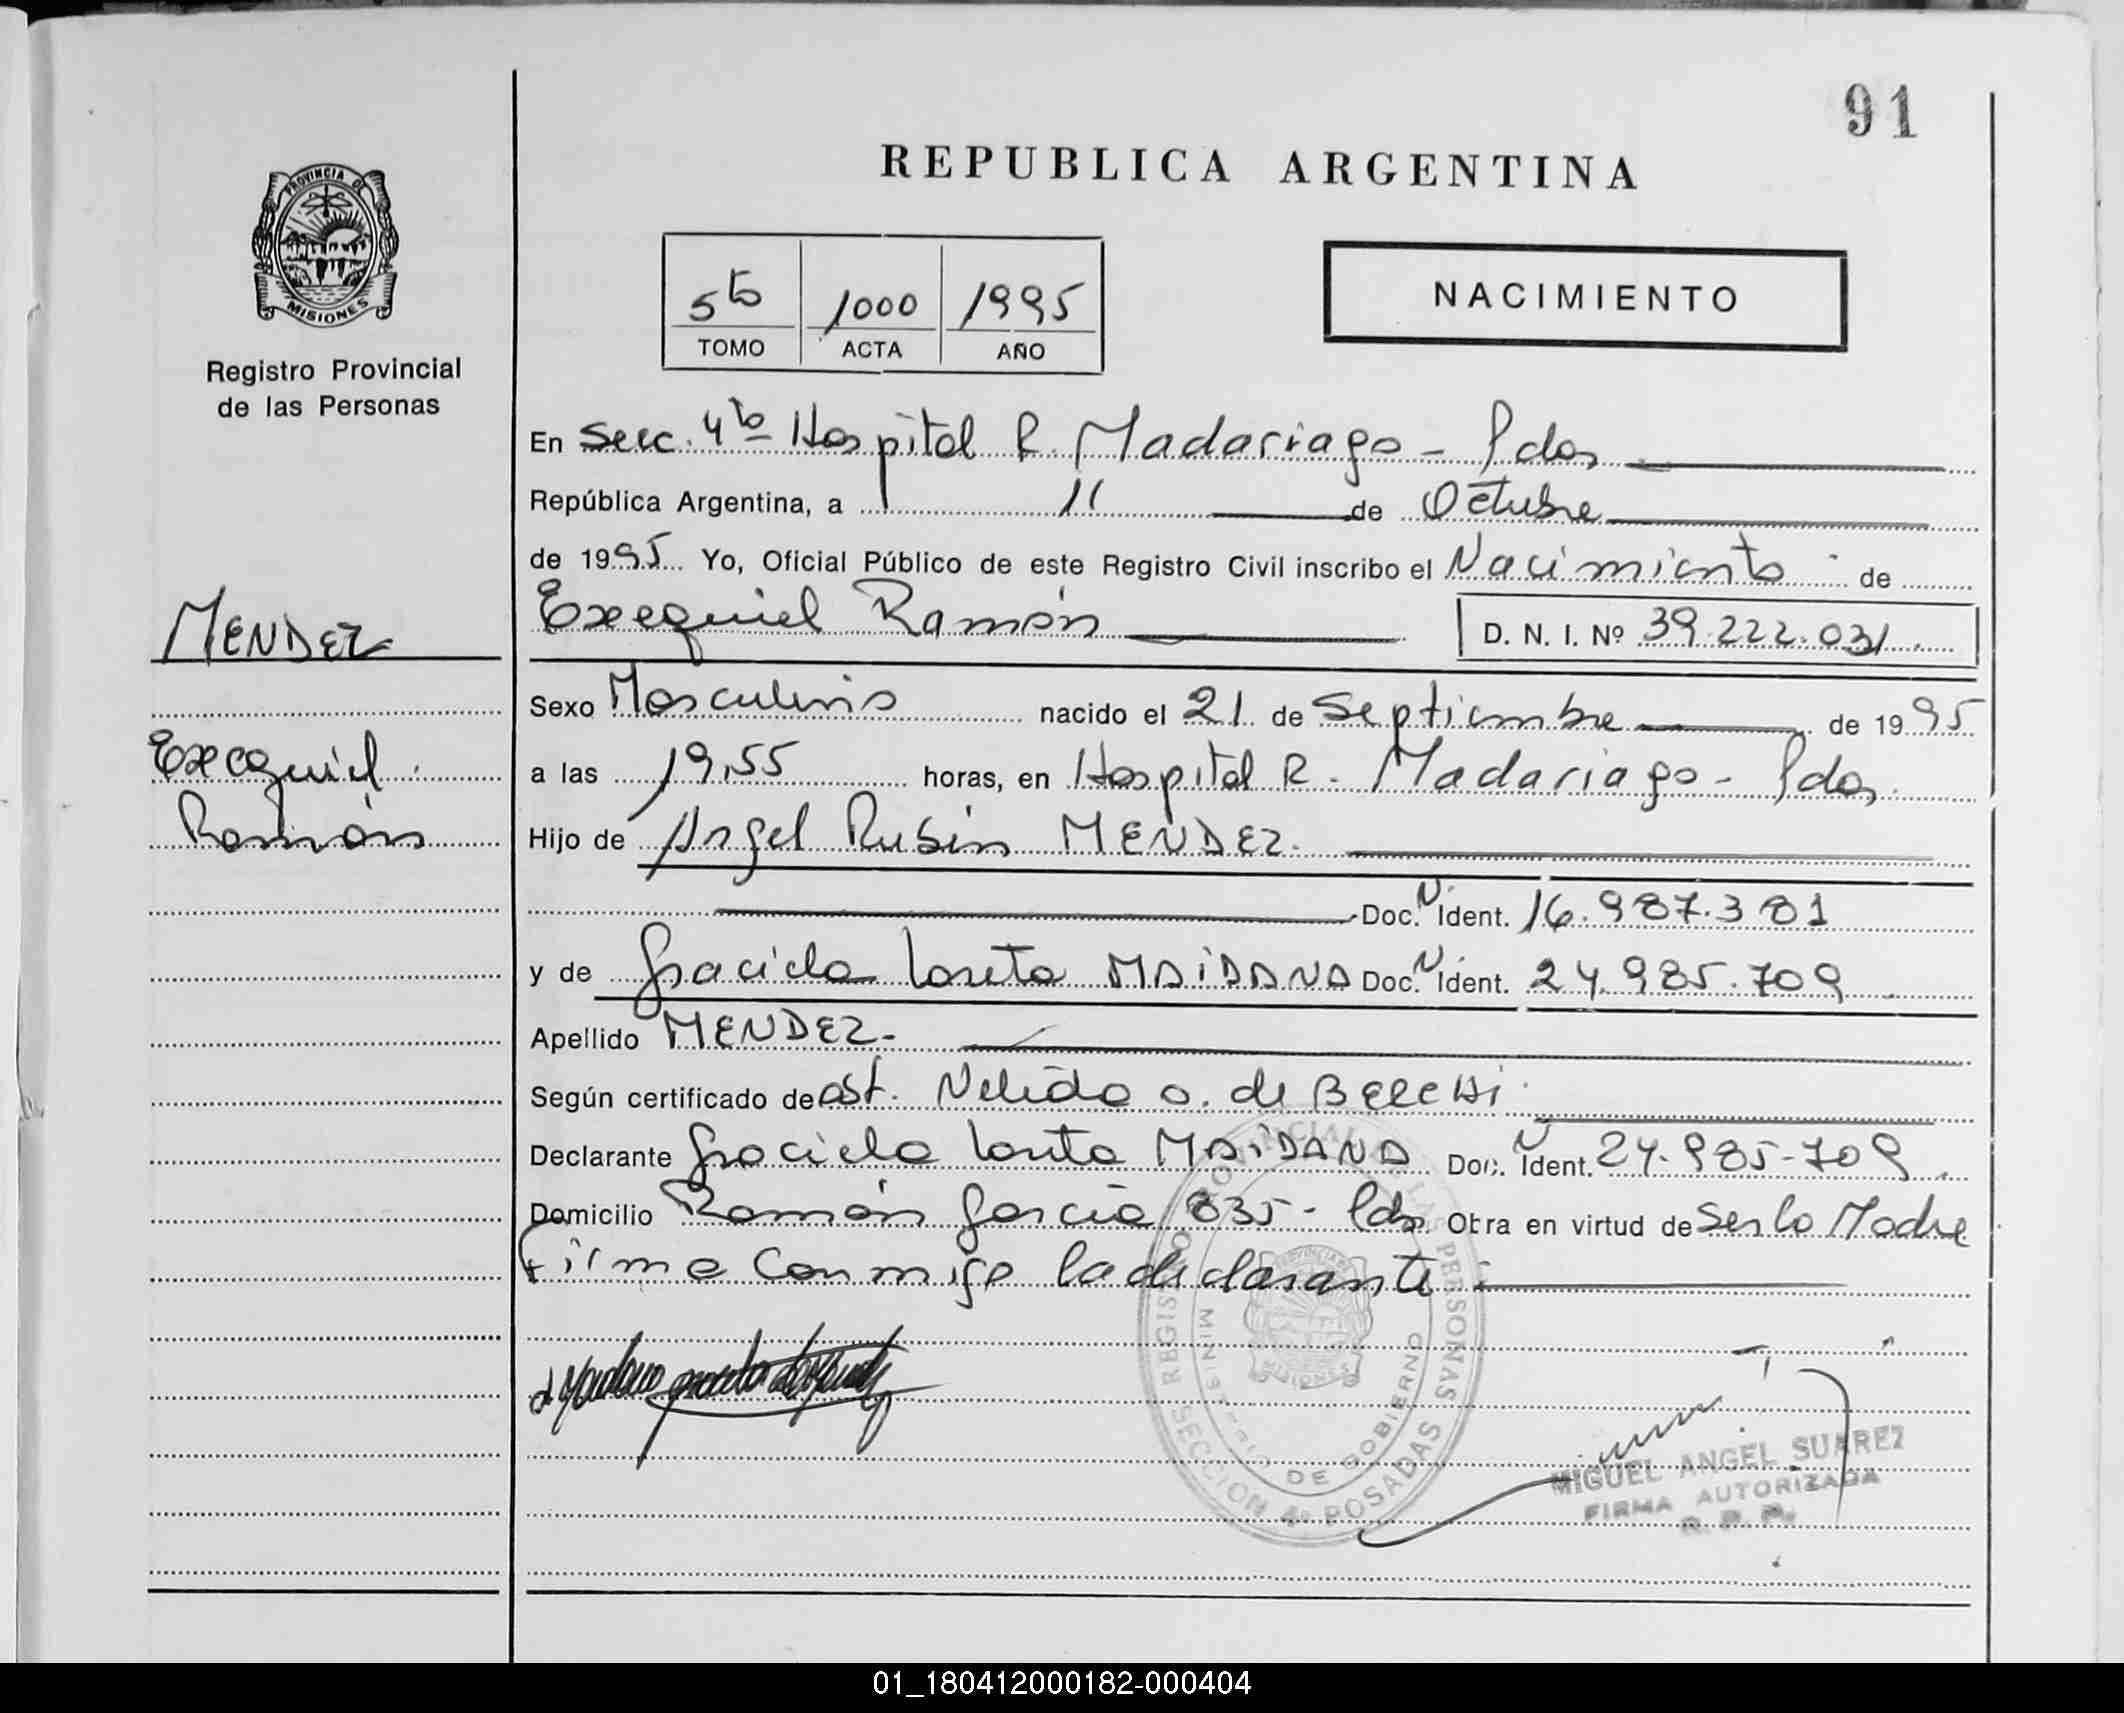 91
REPUBLICA ARGENTINA
PROVINCIA DE
MISIONES
Registro Provincial
de las Personas
5to 1000 1995
TOMO ACTA AÑO
NACIMIENTO
En Secc. 4ta Hospital R. Madariaga - Pdas
República Argentina, a 11 de Octubre
de 1995 Yo, Oficial Público de este Registro Civil inscribo el Nacimiento de
Exequiel Ramón D. N. I. Nº 39.222.031
MENDEZ
Exequiel
Ramón
Sexo Masculino nacido el 21 de Septiembre de 1995
a las 19,55 horas, en Hospital R. Madariaga - Pdas.
Hijo de Angel Rubén MENDEZ.
Doc. N. Ident. 16.987.381
y de Graciela Loreto MAIDANA Doc. N. Ident. 24.985.709
Apellido MENDEZ.
Según certificado de Ost. Nelida O. de
Declarante Graciela Loreto MAIDANA Doc. N. Ident. 24.985-709
Domicilio Ramón García 835 - Pdas Obra en virtud de Ser la Madre
Firma Conmigo la declarante
REGISTRO PROVINCIAL DE LAS PERSONAS
MINISTERIO DE GOBIERNO
SECCION 4ª POSADAS
MIGUEL ANGEL SUAREZ
FIRMA AUTORIZADA
R. P. P.
01_180412000182-000404